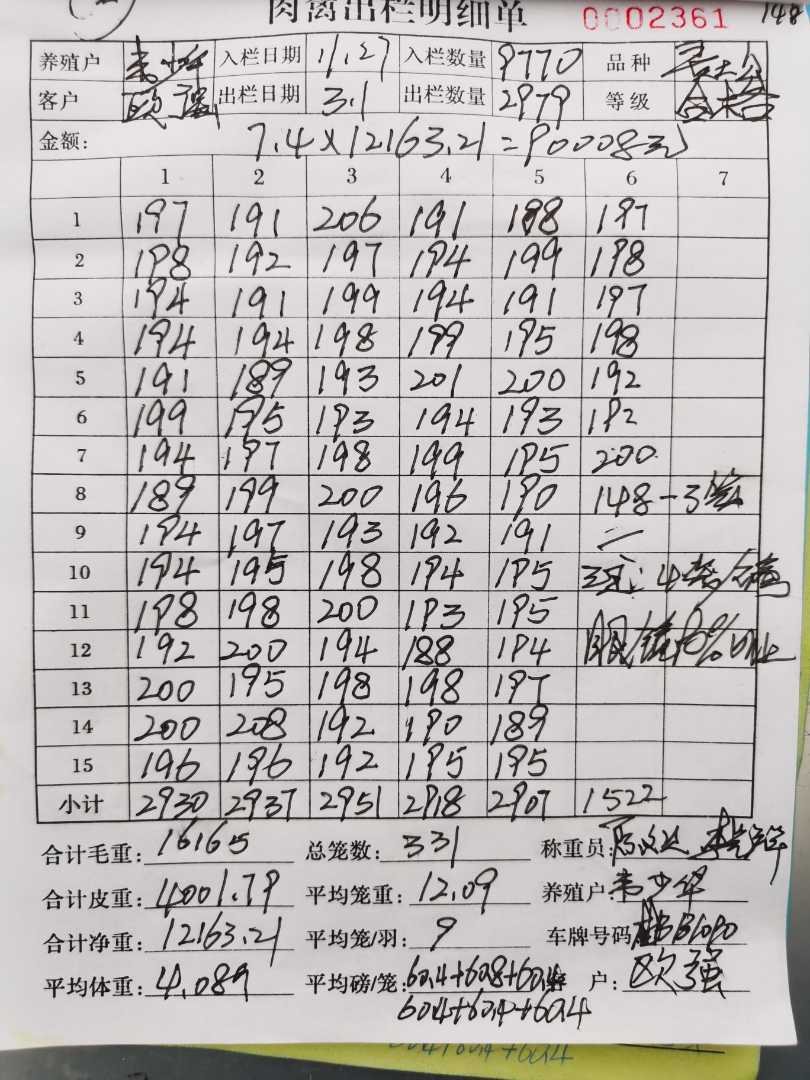 肉禽出栏明细单 0002361 148
养殖户 韦少华 入栏日期 11.27 入栏数量 9770 品种
客户 欧强 出栏日期 3.1 出栏数量 2979 等级 合格
金额: 7.4×12163.21=90008元
1 2 3 4 5 6 7
1 197 191 206 191 198 197
2 198 192 197 194 199 198
3 194 191 199 194 191 197
4 194 194 198 199 195 198
5 191 189 193 201 200 192
6 199 195 193 194 193 192
7 194 197 198 199 195 200
8 189 199 200 196 190 148-3笼
9 194 197 193 192 191
10 194 195 198 194 195
11 198 198 200 193 195
12 192 200 194 188 194
13 200 195 198 198 197
14 200 208 192 190 189
15 196 196 192 195 195
小计 2930 2937 2951 2918 2907 1522
合计毛重: 16165 总笼数: 331 称重员:
合计皮重: 4001.79 平均笼重: 12.09 养殖户: 韦少华
合计净重: 12163.21 平均笼/羽: 9 车牌号码
平均体重: 4.089 平均磅/笼: 60.4+60.8+60.4 户: 欧强
60.4+60.4+60.4